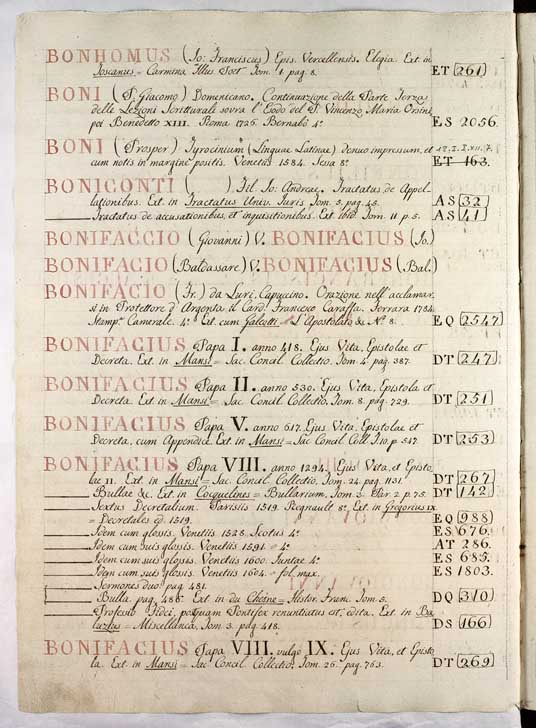 BONHOMUS (Jo: Franciscus) Epis. Vercellensis. Elegia. Ext. in
Toscanus = Carmina Illus Poet Tom. 1. pag. 8. ET 261
BONI (P. Giacomo) Domenicano. Continuazione della Parte Terza
delle Lezioni Scritturali sovra l'Esodo del P. Vincenzo Maria Orsini
poi Benedetto XIII. Roma 1726. Bernabò 4º ES 2056.
BONI (Prosper) Tyrocinium (Linguae Latinae) denuo impressum, et
cum notis in margine positis. Venetiis 1584. Sessa 8º ET 163.
BONICONTI ( ) Fil Jo: Andreae. Tractatus de Appel-
lationibus. Ext. in Tractatus Univ. Juris Tom. 5. pag. 45. AS 32
Tractatus de accusationibus, et inquisitionibus. Ext. ibid. Tom. 11 p. 5. AS 41
BONIFACCIO (Giovanni) V. BONIFACIUS (Jo.)
BONIFACIO (Baldassare) V. BONIFACIUS (Bal.)
BONIFACIO (Fr.) da Luri. Capuccino. Orazione nell'acclamar
si in Protettore d'Argenta il Card. Francesco Caraffa. Ferrara 1784.
Stamp. Camerale. 4º Ext. cum Galeotti = L'Apostolato & Nº 8. EQ 2547
BONIFACIUS Papa I. anno 418. Ejus Vita, Epistolae et
Decreta. Ext. in Mansi = Sac. Concil. Collectio. Tom. 4. pag. 387. DT 247
BONIFACIUS Papa II. anno 530. Ejus Vita, Epistola et
Decreta. Ext. in Mansi = Sac Concil Collectio. Tom. 8. pag. 729. DT 251
BONIFACIUS Papa V. anno 617. Ejus Vita, Epistolae et
Decreta, cum Appendice. Ext. in Mansi = Sac. Concil Coll. T. 10. p. 547 DT 253
BONIFACIUS Papa VIII. anno 1294. Ejus Vita, et Episto
lae II. Ext. in Mansi = Sac. Concil. Collectio. Tom. 24. pag. 1131. DT 267
Bullae &c. Ext. in Cocquelines = Bullarium. Tom. 3. Par. 2. p. 75. DT 142
Sextus Decretalium. Parisiis 1519. 8º. Ext. in Gregorius IX.
= Decretales ed. 1519. EQ 988
Idem cum glossis. Venetiis 1528. Scotus 4º ES 676.
Idem cum suis glossis. Venetiis 1591 = 4º AT 286.
Idem cum suis glossis. Venetiis 1600. Juntae 4º ES 685.
Idem cum suis glossis. Venetiis 1604. = fol. max. ES 1803.
Sermones duo. pag. 481.
Bulla. pag. 486. Ext. in du Chesne = Histor. Franc. Tom. 5. DQ 310
Professio Fidei, postquam Pontifex renuntiatus est, edita. Ext. in Ba
luzius = Miscellanea, Tom 3. pag. 418. DS 166
BONIFACIUS Papa VIII. vulgo IX. Ejus Vita, et Episto
la. Ext. in Mansi = Sac. Concil. Collectio. Tom. 26. pag. 763. DT 269